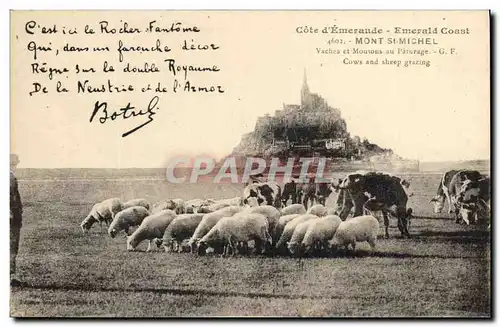 C'est ici le Rocher Fantôme
Qui, dans un farouche décor
Règne sur le double Royaume
De la Neustrie et de l'Armor
Botrel
Côte d'Émeraude - Emerald Coast
4602. - MONT St-MICHEL
Vaches et Moutons au Pâturage. - G. F.
Cows and sheep grazing
CPARAMA.COM